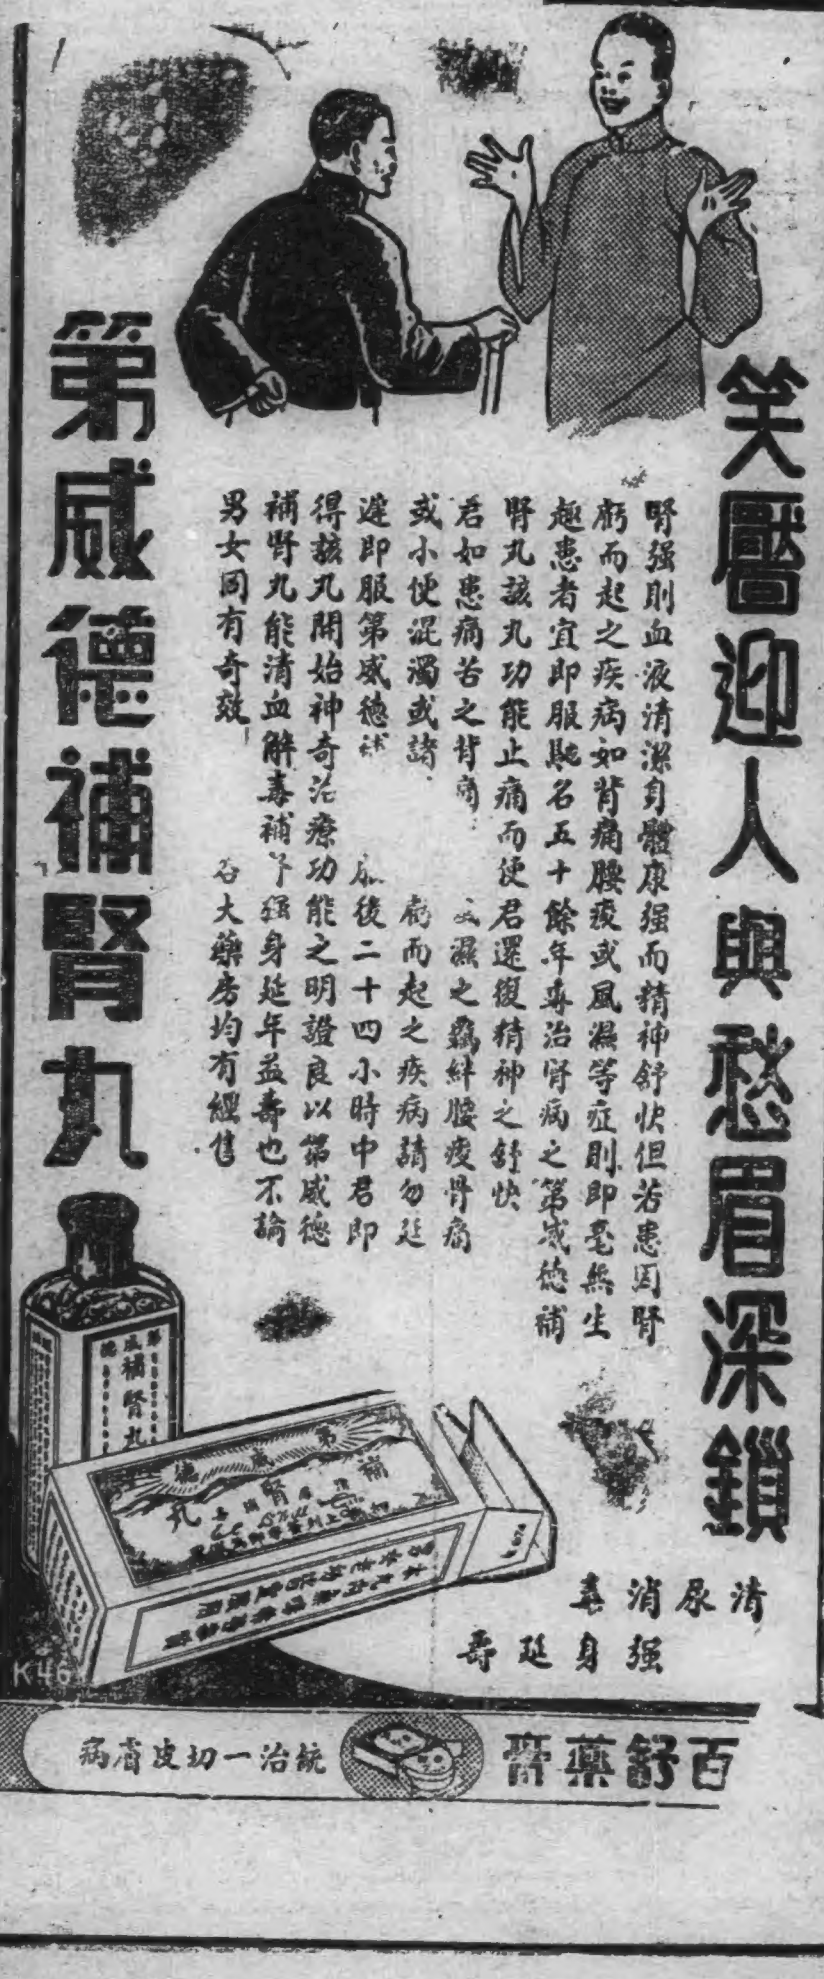 笑靨迎人與愁眉深鎖
腎强則血液清潔身體康强而精神舒快但若患因腎
虧而起之疾病如背痛腰痠或風濕等症則即毫無生
趣患者宜即服馳名五十餘年專治腎病之第威德補
腎丸該丸功能止痛而使君還復精神之舒快
君如患痛苦之背痛 濕之羈絆腰痠骨痛
或小便混濁或諸 虧而起之疾病請勿延
遲即服第威德補 後二十四小時中君即
得該丸開始神奇治療功能之明證良以第威德
補腎丸能清血解毒補腎强身延年益壽也不論
男女同有奇效 各大藥房均有經售
第威德補腎丸
清尿消毒
强身延壽
第威德
補腎丸
第威德
補腎丸
K46
百舒藥膏
統治一切皮膚病